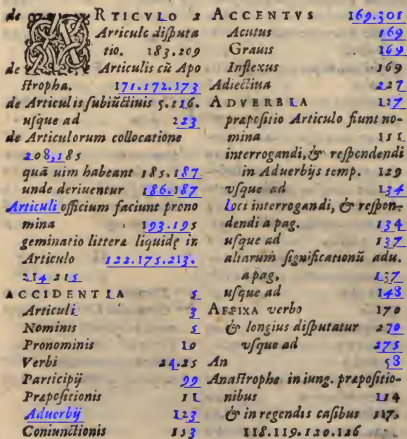 de ARTICVLO 2
Articulc disputa
tio. 183.209
de Articulis cũ Apo
strophа. 171.172.173
de Articulis subiũctiuis 5.216.
usque ad 223
de Articulorum collocatione
208,185
quã uim habeant 185.187
unde deriuentur 186.187
Articuli officium faciunt prono
mina 193.195
geminatio litterę liquidę in
Articulo 122.175.213.
214 215
ACCIDENTIA 5
Articuli 3
Nominis 5
Pronominis 10
Verbi 24.25
Participij 99
Prępositionis 11
Aduerbij 123
Coniunctionis 153
ACCENTVS 169.301
Acutus 169
Grauis 169
Inflexus 169
Adiectiua 227
ADVERBIA 127
prępositio Articulo fiunt no-
mina 111
interrogandi, & respondendi
in Aduerbijs temp. 129
vsque ad 134
loci interrogandi, & respon-
dendi a pag. 134
usque ad 137
aliarum significationũ adu.
a pag. 137
usque ad 148
AFFIXA verbo 170
& longius disputatur 270
vsque ad 275
An 58
Anastrophe in iung. prępositio-
nibus 114
& in regendis casibus 117.
118.119.120.126